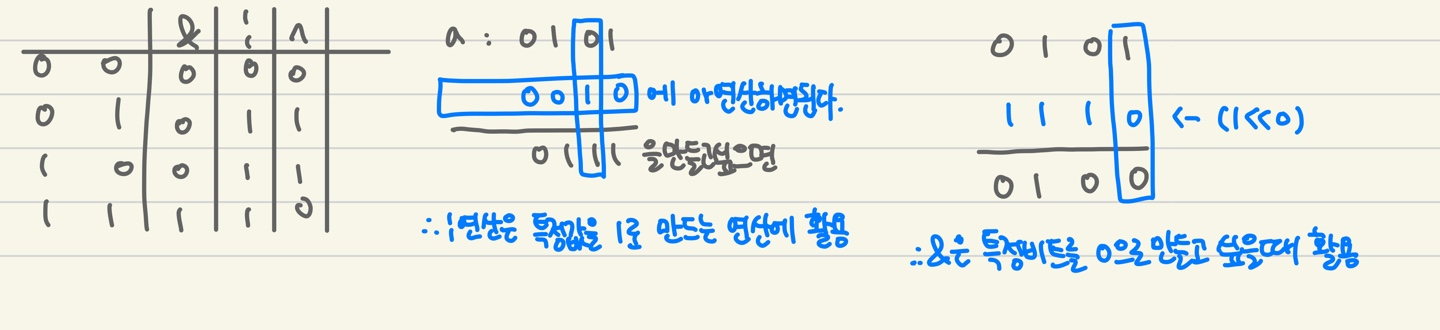 & ¦ ^
0 0 0 0 0
0 1 0 1 1
1 0 0 1 1
1 1 1 1 0
a : 0 1 0 1
0 0 1 0 에 or연산하면된다.
0 1 1 1 을만들고싶으면
∴ ¦연산은 특정값을 1로 만드는 연산에 활용
0 1 0 1
1 1 1 0 <- (1<<0)
0 1 0 0
∴ &은 특정비트를 0으로 만들고 싶을때 활용